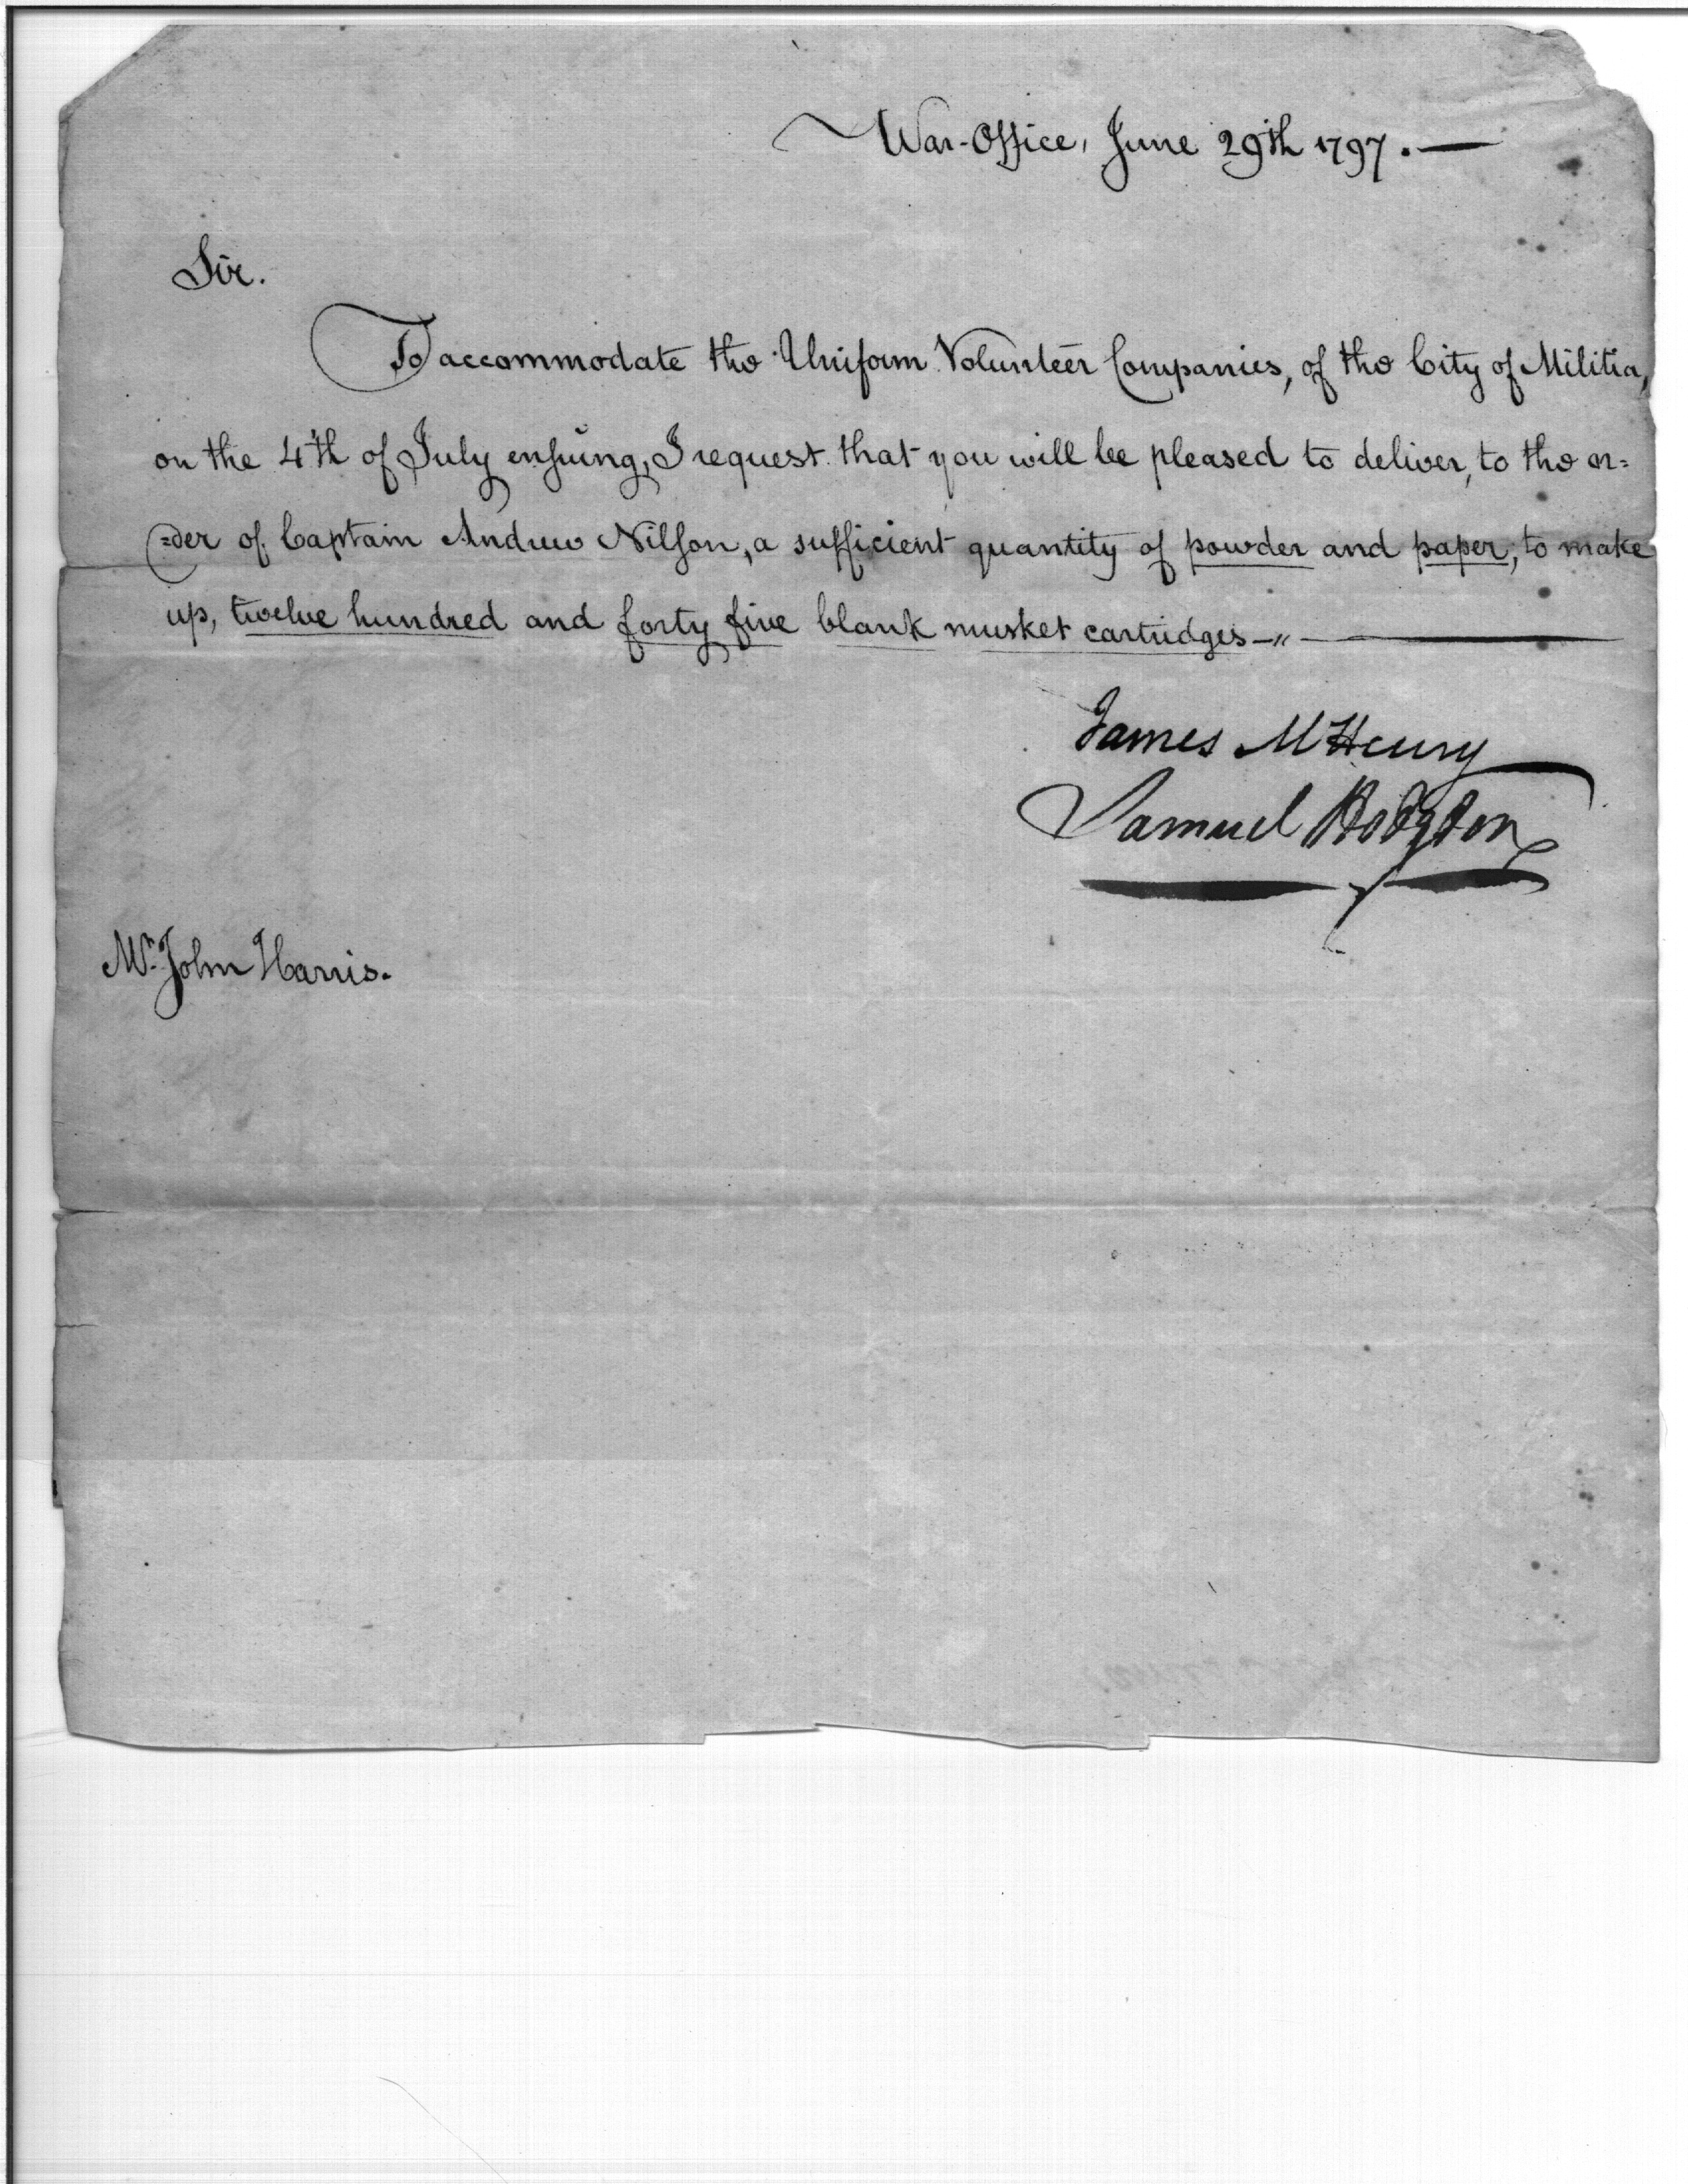 War-Office, June 29th 1797.—
Sir.
To accommodate the Uniform Volunteer Companies, of the City of Militia,
on the 4th of July enſuing, I request that you will be pleased to deliver, to the or=
=der of Captain Andrew Nilſon, a sufficient quantity of powder and paper, to make
up, twelve hundred and forty five blank musket cartridges—"—
James McHenry
Samuel Hodgdon
Mr. John Harris.